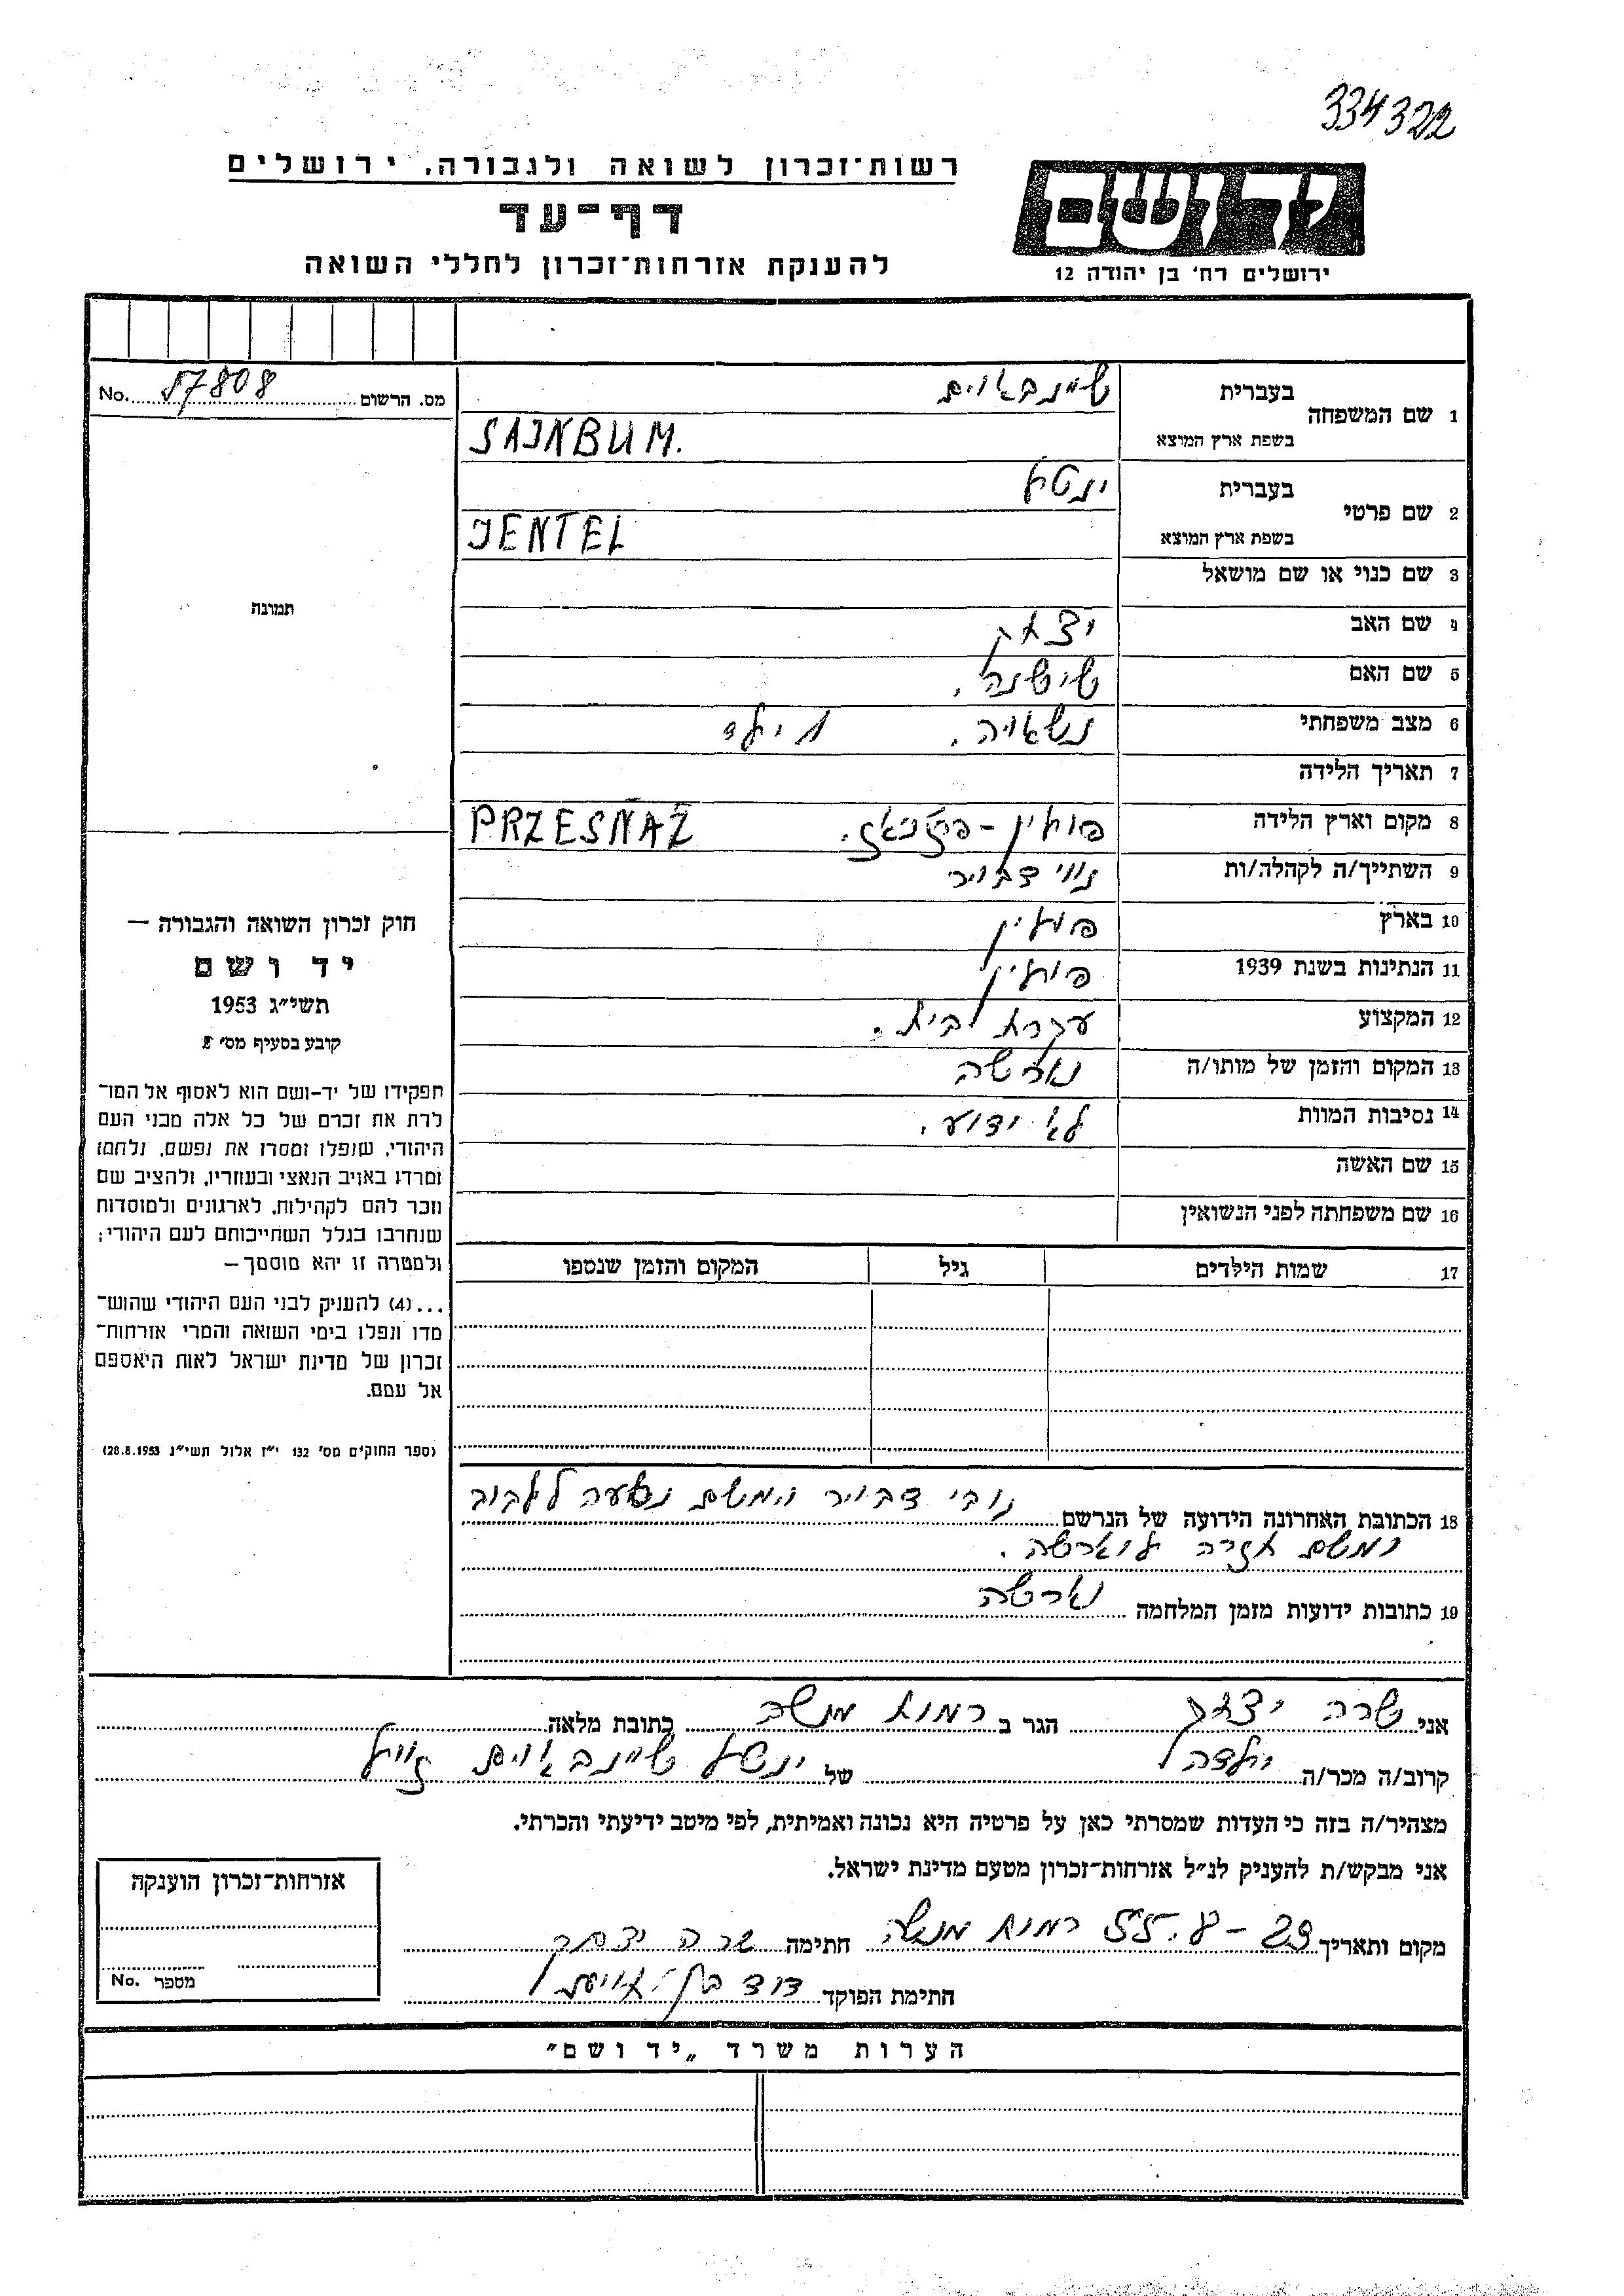 334322
רשות־זכרון לשואה ולגבורה, ירושלים
דף־עד
להענקת אזרחות־זכרון לחללי השואה
יד ושם
ירושלים רח' בן יהודה 12
מס. הרשום 57808 No.
1 שם המשפחה בעברית שיינבאוים
בשפת ארץ המוצא SAJNBUM.
2 שם פרטי בעברית ינטל
בשפת ארץ המוצא JENTEL
תמונה
3 שם כנוי או שם מושאל
4 שם האב יצחק
5 שם האם
6 מצב משפחתי נשאויה. 1 ילד
7 תאריך הלידה
8 מקום וארץ הלידה פולין - PRZESNAZ
9 השתייך/ה לקהלה/ות נווי דבויר
10 בארץ פולין
11 הנתינות בשנת 1939 פולין
12 המקצוע עקרת לבית.
13 המקום והזמן של מותו/ה וארשה
14 נסיבות המוות לא ידוע.
15 שם האשה
16 שם משפחתה לפני הנשואין
17 שמות הילדים גיל המקום והזמן שנספו
חוק זכרון השואה והגבורה —
יד ושם
תשי״ג 1953
קובע בסעיף מס' 2
תפקידו של יד-ושם הוא לאסוף אל המו־
לדת את זכרם של כל אלה מבני העם
היהודי, שנפלו ומסרו את נפשם, נלחמו
ומרדו באויב הנאצי ובעוזריו, ולהציב שם
וזכר להם לקהילות, לארגונים ולמוסדות
שנחרבו בגלל השתייכותם לעם היהודי;
ולמטרה זו יהא מוסמך —
...(4) להעניק לבני העם היהודי שהוש־
מדו ונפלו בימי השואה והמרי אזרחות־
זכרון של מדינת ישראל לאות היאספם
אל עמם.
(ספר החוקים מס' 132 י״ז אלול תשי״ג 28.8.1953)
18 הכתובת האחרונה הידועה של הנרשם נובי דבויר ומשם נסעה ללבוב
ומשם חזרה לווארשה.
19 כתובות ידועות מזמן המלחמה וארשה
אני שרה יצחק הגר ב רמות מנשה כתובת מלאה
קרוב/ה מכר/ה של ינטל שיינבאוים
מצהיר/ה בזה כי העדות שמסרתי כאן על פרטיה היא נכונה ואמיתית, לפי מיטב ידיעתי והכרתי.
אני מבקש/ת להעניק לנ״ל אזרחות־זכרון מטעם מדינת ישראל.
מקום ותאריך 29-8.55 רמות מנשה חתימה שרה יצחק
חתימת הפוקד דוד בן
אזרחות־זכרון הוענקה
מספר No.
הערות משרד „יד ושם״